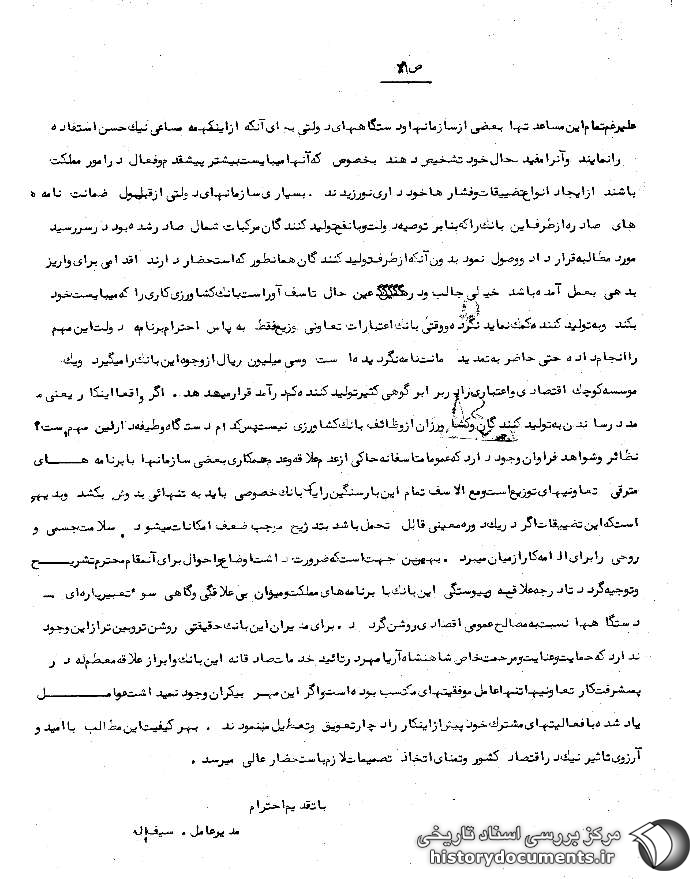 علیرغم تمام این مساعد تنها بعضی از سازمانها و دستگاههای دولتی بجای آنکه از اینهمه مساعی نیک حسن استفاده
را نمایند و آنرا مفید بحال خود تشخیص دهند بخصوص که آنها میبایست بیشتر پیشقدم و فعال در امور مملکت
باشند از ایجاد انواع تضییقات و فشارها خود داری نورزیدند . بسیاری سازمانهای دولتی از قبیل قبول ضمانت نامه ه
های صادره از طرف این بانک را که بنابر توصیه دولت و بانفع تولید کنندگان مرکبات شمال صادر شده بود در سررسید
مورد مطالبه قرار داد و وصول نمود بدون آنکه از طرف تولید کنندگان همانطور که استحضار دارند اقدامی برای واریز
بدهی بعمل آمده باشد خیلی جالب و در عین حال تاسف آور است بانک کشاورزی کاری را که میبایست خود
بکند و به تولید کننده کمک نماید نکرده و وقتی بانک اعتبارات تعاونی توزیع فقط به پاس احترام برنامه دولت این مهم
را انجام داده حتی حاضر به تمدید ضمانت نامه نگردیده است وسی میلیون ریال از وجوه این بانک را میگیرد و یک
موسسه کوچک اقتصادی و اعتباری را در برابر گروهی کثیر تولید کننده کم درآمد قرار میدهد . اگر واقعا اینکار یعنی م
مدد رساندن به تولید کنندگان و کشاورزان از وظائف بانک کشاورزی نیست پس کدام دستگاه وظیفه دار این مهم است؟
نظائر و شواهد فراوان وجود دارد که عموما متاسفانه حاکی از عدم علاقه وعدم همکاری بعضی سازمانها با برنامه های
مترقی تعاونیهای توزیع است و مع الاسف تمام این بار سنگین را یک بانک خصوصی باید به تنهائی بدوش بکشد و بدیهی
است که این تضییقات اگر در یک دوره معینی قابل تحمل باشد بتدریج موجب ضعف امکانات میشود و سلامت جسمی و
روحی را برای ادامه کار از میان میبرد . بهمین جهت است که ضرورت داشت اوضاع و احوال برای آنمقام محترم تشریح
و توجیه گردد تا درجه علاقه و پیوستگی این بانک با برنامه های مملکت و میزان بی علاقگی و گاهی سوء تعبیر پاره ای
دستگاهها نسبت به مصالح عمومی اقتصادی روشن گردد . برای مدیران این بانک حقیقتی روشن تر و مبین تر از این وجود
ندارد که حمایت و عنایت و مرحمت خاص شاهنشاه آریامهر در تائید خدمات صادقانه این بانک و ابراز علاقه معظم له در
پیشرفت کار تعاونیها تنها عامل موفقیتهای مکتسب بوده است و اگر این مهر بیکران وجود نمیداشت عوامل
یاد شده با فعالیتهای مشترک خود پیش از اینکار را دچار تعویق و تعطیل مینمودند . بهر کیفیت این مطالب با امید و
آرزوی تاثیر نیک در اقتصاد کشور و تمنای اتخاذ تصمیمات لازم باستحضار عالی میرسد .
با تقدیم احترام
مدیر عامل . سیف اله
مرکز بررسی اسناد تاریخی
historydocuments.ir